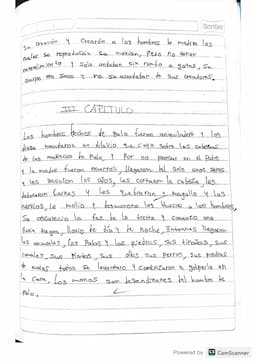 Scribe
Se crearón y crearón a los hombres de madera los
cuales se reproducian se morian, pero no tenian
entendimiento y solo andaban sin rumbo a gatas, su
cuerpo era seco y no se acordaban de sus creadores.
III CAPITULO
Los hombres hechos de palo fueron aniquilados y los
dioses mandaron un diluvio que cayo sobre las cabezas
de los muñecos de Palo, y Por no pensar en el Padre
y la madre fueron muertos, llegaron
y les los ojos, les cortaron la cabeza, les
devoraron carnes y les y magullo y los
nervios, le molio y los Huesos a los hombres,
Se oscurecio la faz de la tierra y comenzo una
lluvia negra, lluvia de día y de noche, Entonces llegaron
los animales, los Palos y las piedras, sus tinajas, sus
comales, sus Platos, sus ollas sus perros, sus piedras
de moler todos se levantaro y comenzaron a golpearle en
la cara. Los monos son descendientes del hombre de
Palo.
Powered by CS CamScanner